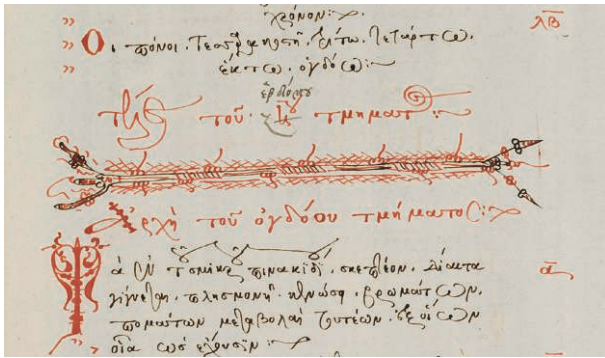 χρόνον:
λβ
Οἱ πόνοι. τετάρτω.
ἕκτω. ὀγδόω:
ἑβδόμου
τέλος τοῦ τμήματ:
ἀρχὴ τοῦ ὀγδόου τμήματος:
Τὰ ἐν τῶ σμικρῶ πινακιδί. σκεπτέον. δίαιτα
α
γίγνεται. πλησμονῆ. κενώσει. βρωμάτων.
πομάτων μεταβολαὶ τουτέων. ἐξ οἵων
οἷα ὡς ἔχουσιν: